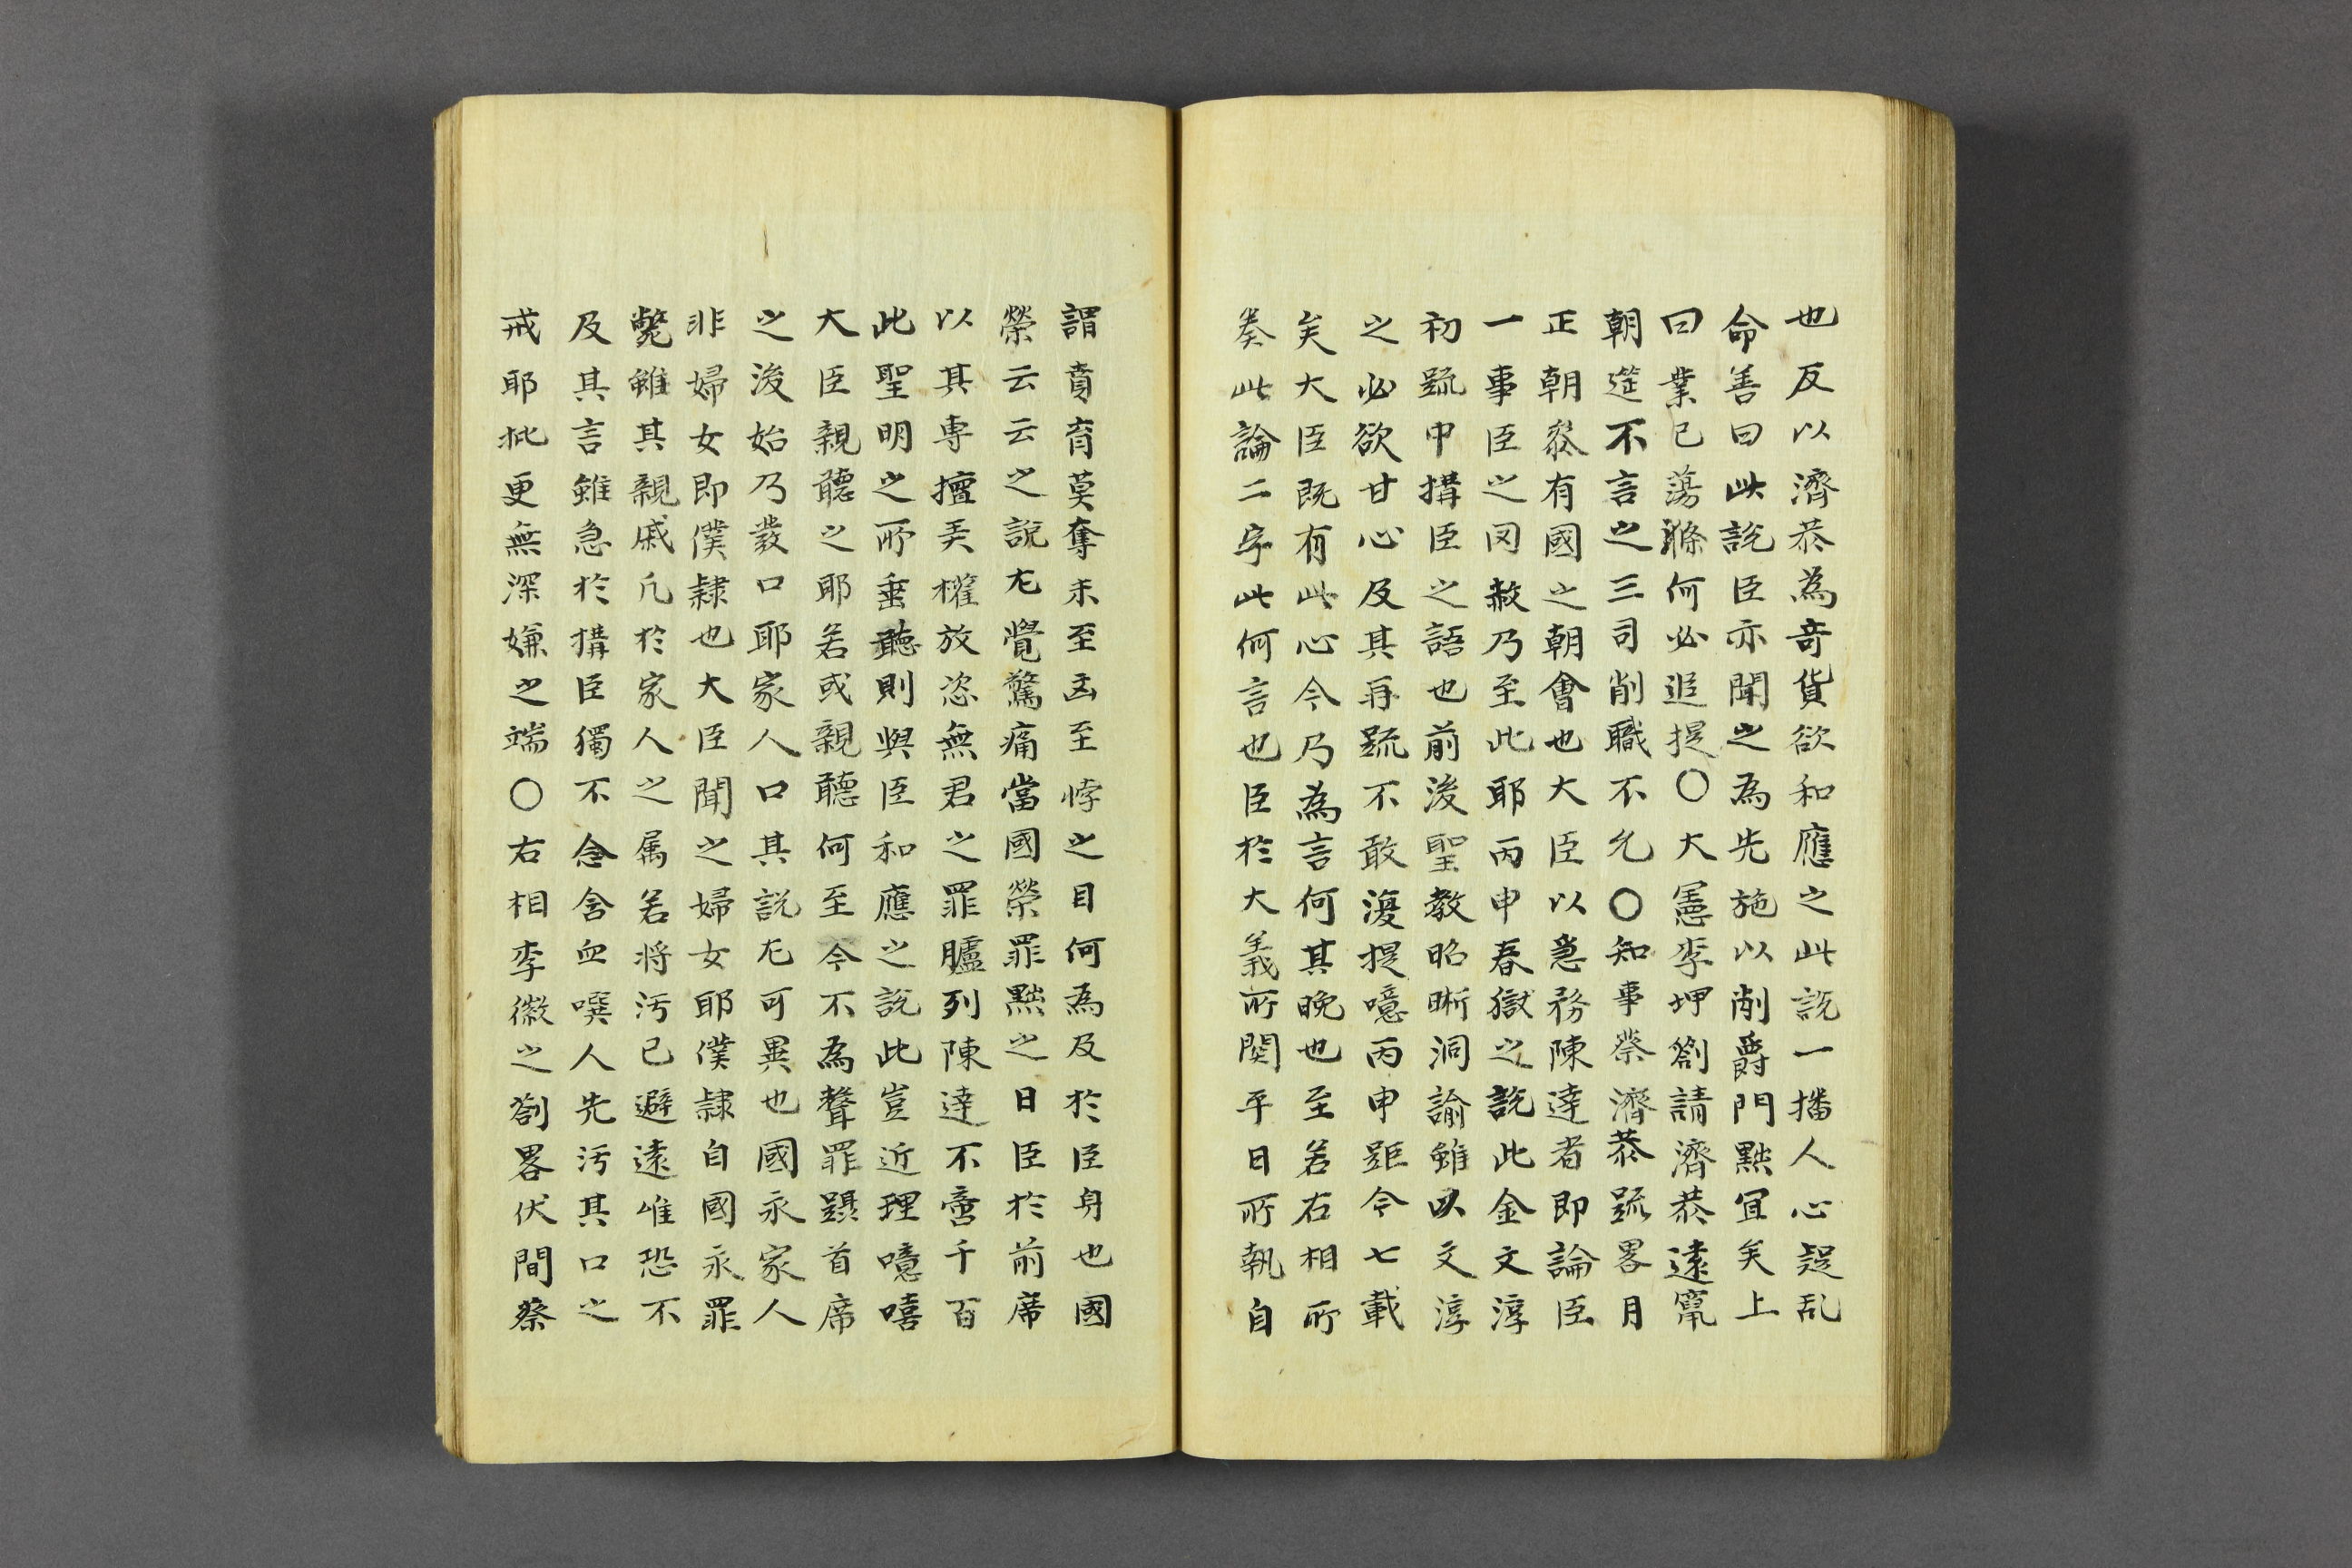 也反以濟恭為奇貨欲和應之此說一播人心疑乱
命善曰此說臣亦聞之為先施以削爵門黜宜矣上
曰業已蕩滌何必追提〇大憲李坤劄請濟恭遠竄
朝筵不言之三司削職不允〇知事蔡濟恭疏畧月
正朝叅有國之朝會也大臣以急務陳達者即論臣
一事臣之罔赦乃至此耶丙申春獄之說此金文淳
初疏中搆臣之語也前後聖教昭晰洞諭雖以文淳
之必欲甘心及其再疏不敢復提噫丙申距今七載
矣大臣既有此心今乃為言何其晚也至若右相所
奏此論二字此何言也臣於大義所関平日所執自
謂賁育莫奪末至凶至悖之目何為及於臣身也國
榮云云之說尤覺驚痛當國榮罪黜之日臣於前席
以其專擅弄權放恣無君之罪臚列陳達不啻千百
此聖明之所垂聽則與臣和應之說此豈近理噫嘻
大臣親聽之耶若或親聽何至今不為聲罪躡首席
之後始乃發口耶家人口其說尤可異也國永家人
非婦女即僕隷也大臣聞之婦女耶僕隷自國永罪
斃雖其親戚凡於家人之属若將汚已避遠唯恐不
及其言雖急於搆臣獨不念含血噀人先汚其口之
戒耶批更無深嫌之端〇右相李徽之劄畧伏間蔡